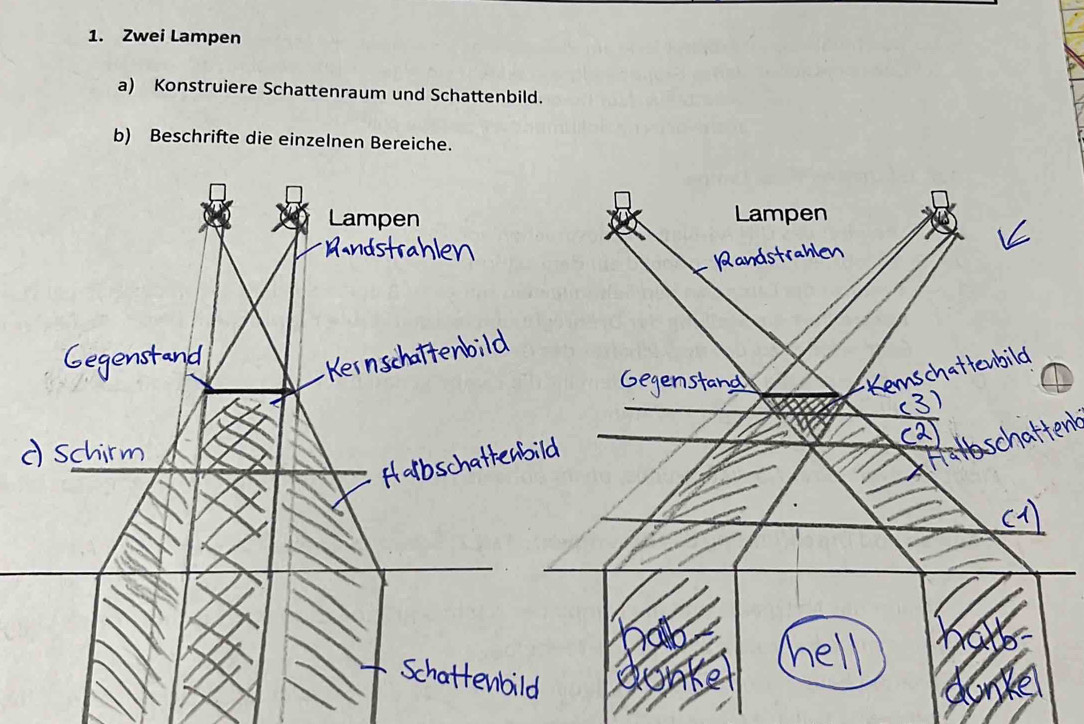 1. Zwei Lampen
a) Konstruiere Schattenraum und Schattenbild.
b) Beschrifte die einzelnen Bereiche.
Lampen
Randstrahlen
Gegenstand
Kernschattenbild
c) Schirm
Halbschattenbild
Schattenbild
Lampen
Randstrahlen
Gegenstand
Kernschattenbild
(3)
(2)
Halbschattenb
(1)
halb-
dunkel
hell
halb-
dunkel